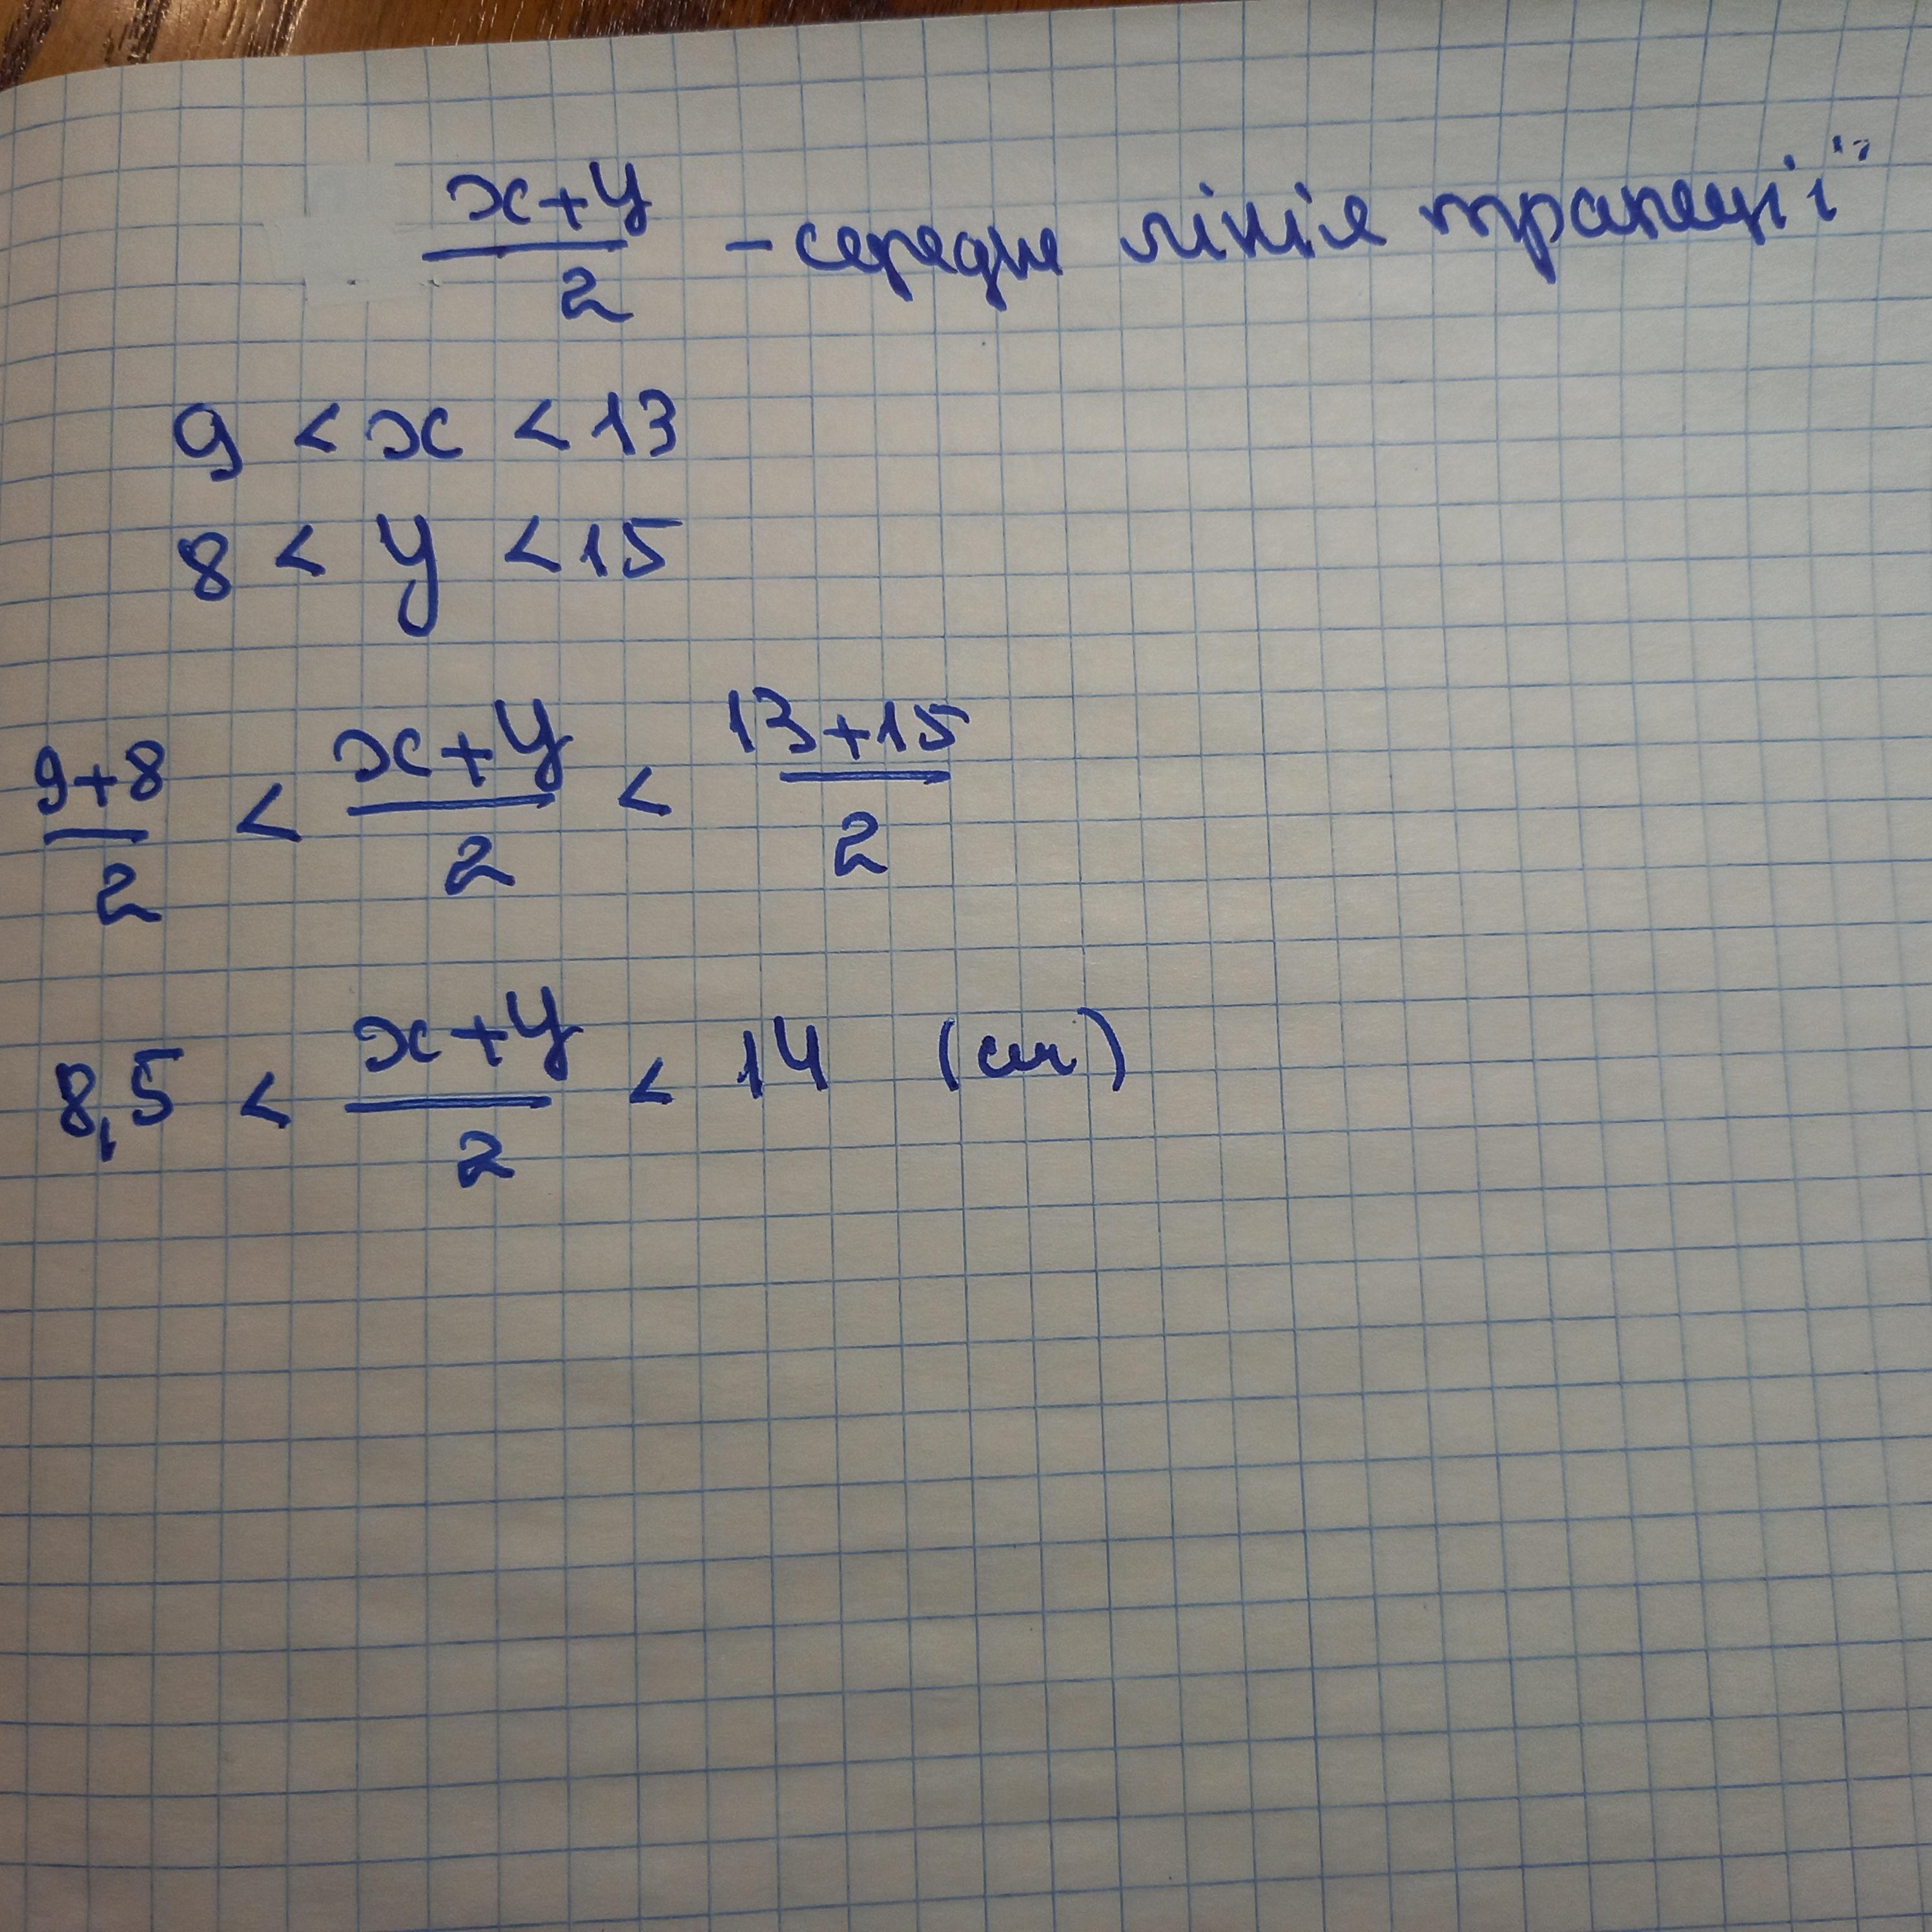 x+y/2 - середня лінія трапеції
9 < x < 13
8 < y < 15
9+8/2 < x+y/2 < 13+15/2
8,5 < x+y/2 < 14 (см)